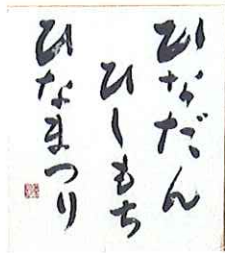 ひなだん
ひしもち
ひなまつり